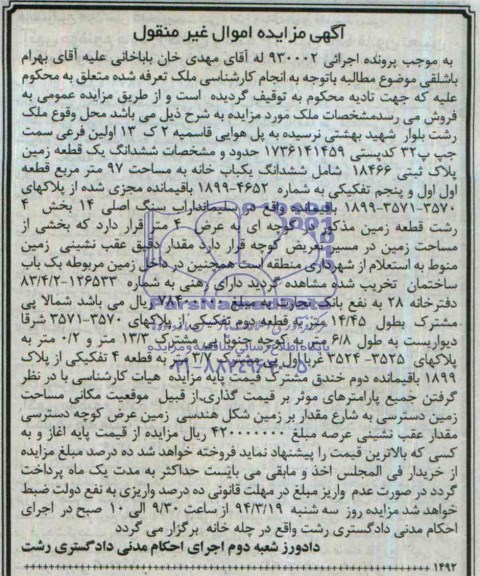 آگهی مزایده اموال غیر منقول
به موجب پرونده اجرائی ۹۳۰۰۰۲ له آقای مهدی خان باباخانی علیه آقای بهرام
باشلقی موضوع مطالبه باتوجه به انجام کارشناسی ملک تعرفه شده متعلق به محکوم
علیه که جهت تادیه محکوم به توقیف گردیده است و از طریق مزایده عمومی به
فروش می رسدمشخصات ملک مورد مزایده به شرح ذیل می باشد محل وقوع ملک
رشت بلوار شهید بهشتی نرسیده به پل هوایی قاسمیه ۲ ک ۱۳ اولین فرعی سمت
چپ پ۳۲ کدپستی ۱۷۳۶۱۴۱۴۵۹ حدود و مشخصات ششدانگ یک قطعه زمین
پلاک ثبتی ۱۸۴۶۶ شامل ششدانگ یکباب خانه به مساحت ۹۷ متر مربع قطعه
اول اول و پنجم تفکیکی به شماره ۴۶۵۲-۱۸۹۹ باقیمانده مجزی شده از پلاکهای
۳۵۷۰-۳۵۷۱-۱۸۹۹ باقیمانده واقع در سلیمانداراب سنگ اصلی ۱۴ بخش ۴
رشت قطعه زمین مذکور در کوچه ای به عرض ۴ متر قرار دارد که بخشی از
مساحت زمین در مسیر تعریض کوچه قرار دارد مقدار دقیق عقب نشینی زمین
منوط به استعلام از شهرداری منطقه است همچنین در داخل زمین مربوطه یک باب
ساختمان تخریب شده مشاهده گردید دارای رهنی به شماره ۱۲۶۵۳۳-۸۳/۴/۲
دفترخانه ۲۸ به نفع بانک تجارت به مبلغ ریال می باشد شمالا پی
مشترک بطول ۱۴/۴۵ متر به قطعه دوم تفکیکی از پلاکهای ۳۵۷۰-۳۵۷۱ شرقا
دیواریست به طول ۶/۸ متر به کوچه جنوبا پی مشترک ۱۳/۲ متر و ۰/۲ متر به
پلاکهای ۳۵۲۵-۳۵۲۴ غربا اول پی مشترک ۳/۷ متر به قطعه ۴ تفکیکی از پلاک
۱۸۹۹ باقیمانده دوم خندق مشترک قیمت پایه مزایده هیات کارشناسی با در نظر
گرفتن جمیع پارامترهای موثر بر قیمت گذاری.از قبیل موقعیت مکانی مساحت
زمین دسترسی به شارع مقدار بر زمین شکل هندسی زمین عرض کوچه دسترسی
مقدار عقب نشینی عرصه مبلغ ۴۲۰۰۰۰۰۰۰ ریال مزایده از قیمت پایه اغاز و به
کسی که بالاترین قیمت را پیشنهاد نماید فروخته خواهد شد ده درصد مبلغ مزایده
از خریدار فی المجلس اخذ و مابقی می بایست حداکثر به مدت یک ماه پرداخت
گردد در صورت عدم واریز مبلغ در مهلت قانونی ده درصد واریزی به نفع دولت ضبط
خواهد شد.مزایده روز سه شنبه ۹۴/۳/۱۹ از ساعت ۹/۳۰ الی ۱۰ صبح در اجرای
احکام مدنی دادگستری رشت واقع در چله خانه برگزار می گردد
دادورز شعبه دوم اجرای احکام مدنی دادگستری رشت
۱۴۹۲